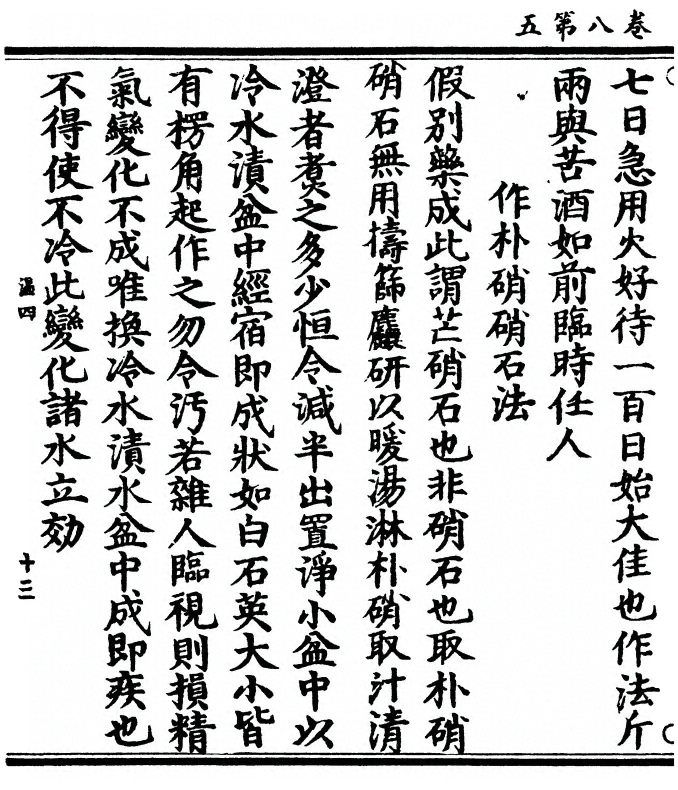 卷八第五
七日急用火好待一百日始大佳也作法斤
兩與苦酒如前臨時任人
作朴硝硝石法
假別藥成此謂芒硝石也非硝石也取朴硝
硝石無用擣篩麤研以暖湯淋朴硝取汁清
澄者煑之多少恒令減半出置淨小盆中以
冷水漬盆中經宿即成狀如白石英大小皆
有楞角起作之勿令污若雜人臨視則損精
氣變化不成唯換冷水漬水盆中成即疾也
不得使不冷此變化諸水立効
温四
十三